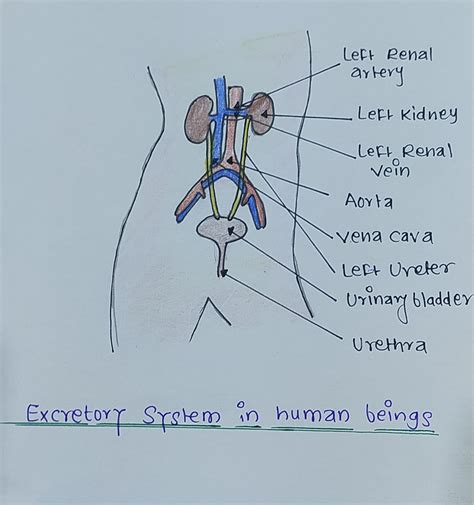 Left Renal
artery
Left Kidney
Left Renal
vein
Aorta
Vena cava
Left Ureter
Urinary bladder
Urethra
Excretory System in human beings